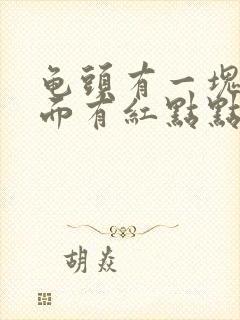 龟頭有一塊
而有紅點點
胡焱